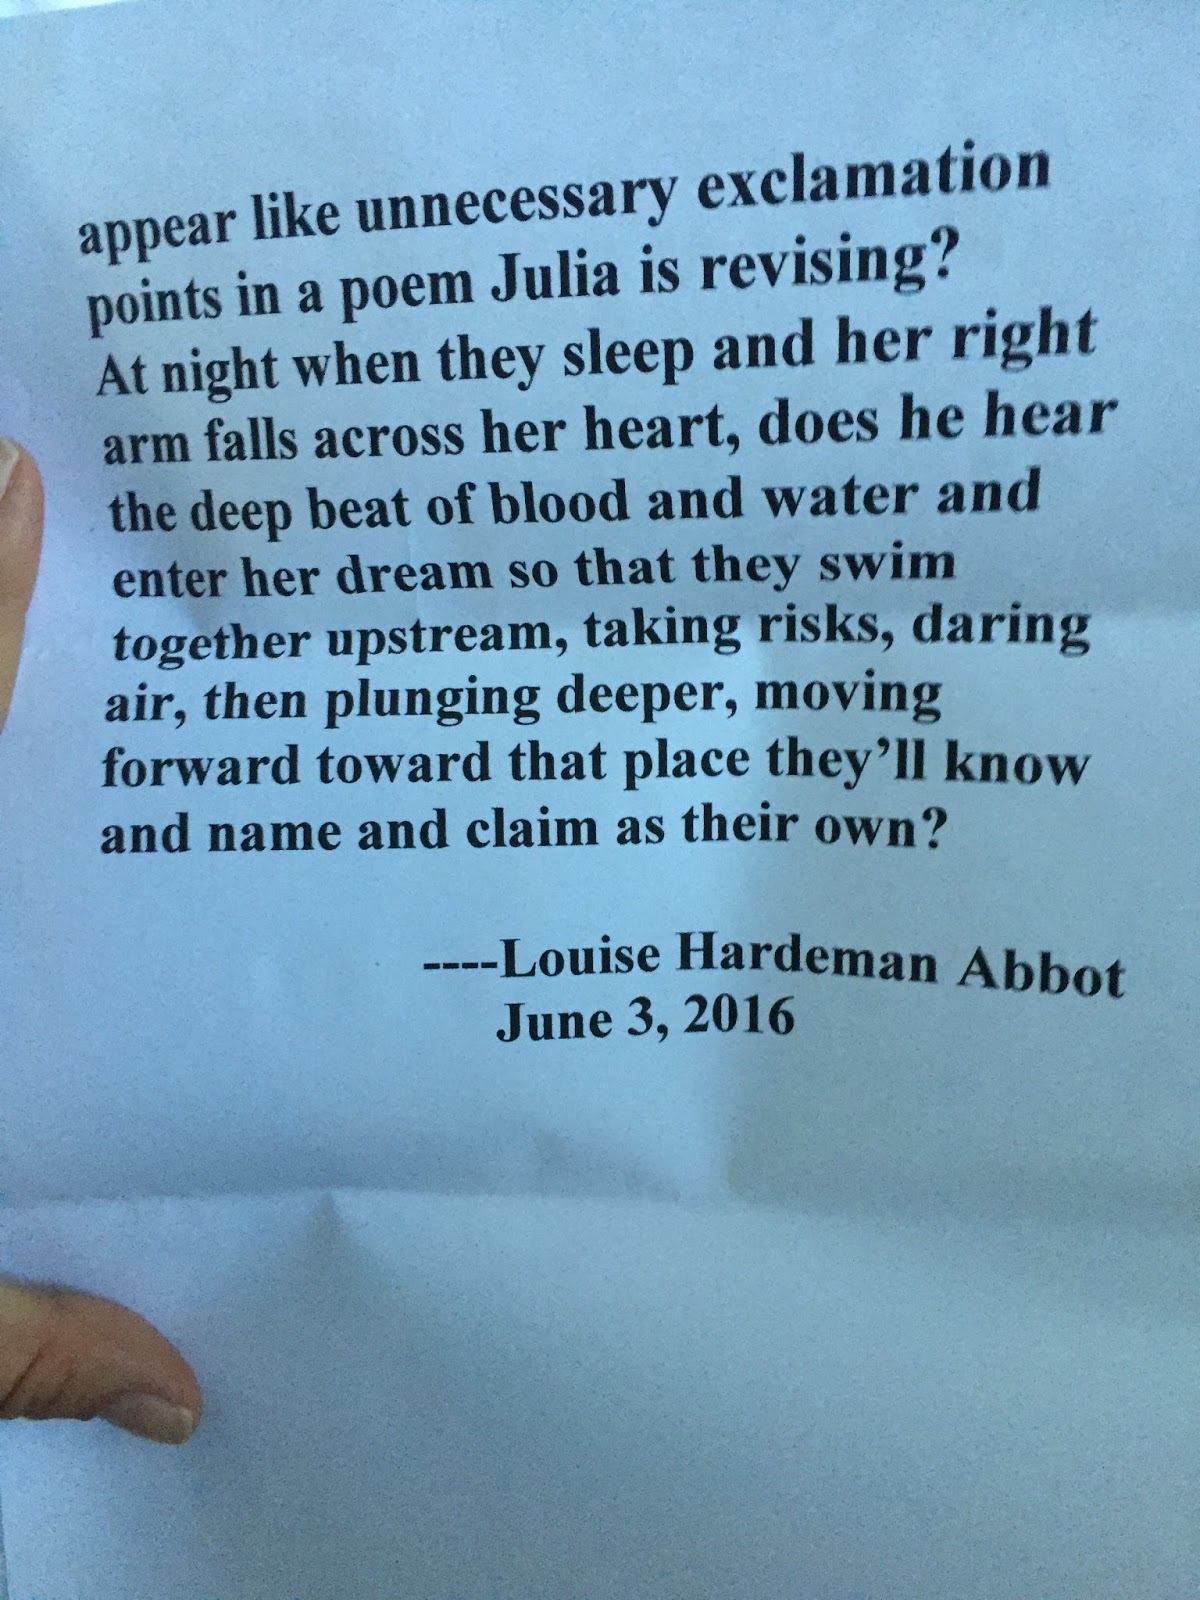 appear like unnecessary exclamation
points in a poem Julia is revising?
At night when they sleep and her right
arm falls across her heart, does he hear
the deep beat of blood and water and
enter her dream so that they swim
together upstream, taking risks, daring
air, then plunging deeper, moving
forward toward that place they’ll know
and name and claim as their own?
----Louise Hardeman Abbot
June 3, 2016